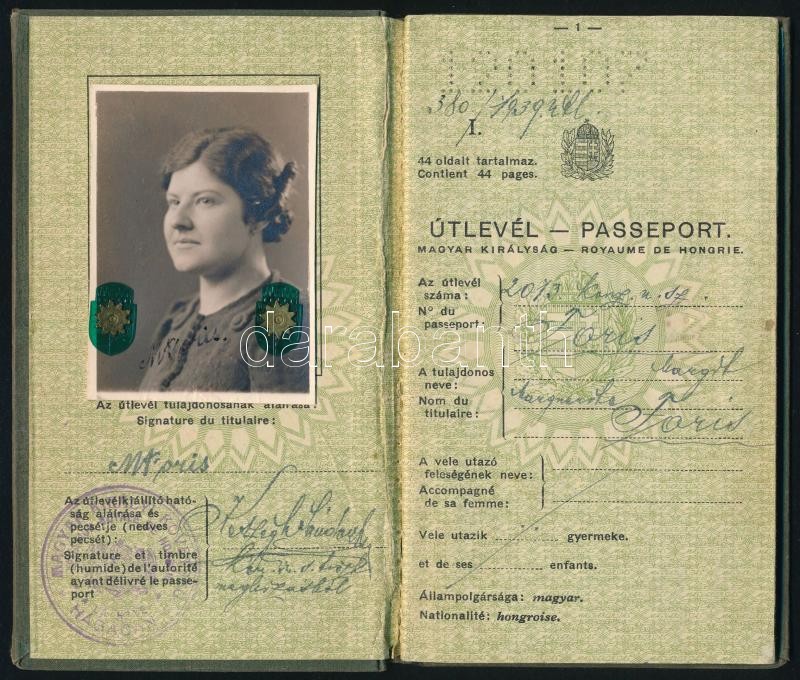 Az útlevél tulajdonosának aláírása:
Signature du titulaire:
Az útlevélkiállító ható-
ság aláírása és
pecsétje (nedves
pecsét):
Signature et timbre
(humide) de l'autorité
ayant délivré le passe-
port
— 1 —
380/1939
I.
44 oldalt tartalmaz.
Contient 44 pages.
ÚTLEVÉL — PASSEPORT.
MAGYAR KIRÁLYSÁG — ROYAUME DE HONGRIE.
Az útlevél
száma:
N° du
passeport:
2013
Fóris
A tulajdonos
neve:
Nom du
titulaire:
Margit
Marguerite
Fóris
A vele utazó
feleségének neve:
Accompagné
de sa femme:
Vele utazik gyermeke.
et de ses enfants.
Állampolgársága: magyar.
Nationalité: hongroise.
darabanth